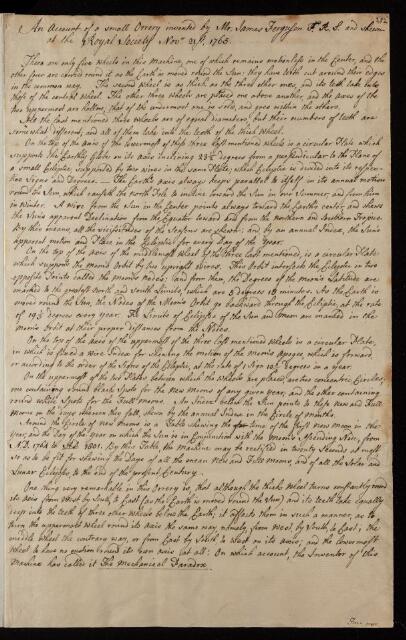 An Account of a small Orrery invented by Mr. James Ferguson F. R. S. and shewn
at the Royal Society Novr. 21st. 1765.
There are only five Wheels in this Machine, one of which remains motionless in the Center, and the
other four are carried round it as the Earth is moved round the Sun; they have teeth cut around their edges
in the common way. The second Wheel is as thick as the three other ones, and its teeth take into
those of the central Wheel. The other three wheels are placed one above another, and the axes of the
two uppermost are hollow, that of the undermost one is solid, and goes within the others.
All the last mentioned three Wheels are of equal diameters, but their numbers of teeth are
somewhat different, and all of them take into the teeth of the thick Wheel.
On the top of the axis of the lowermost of these three last mentioned wheels is a circular Plate which
supports the Earth's Globe on its axis inclining 23½ degrees from a perpendicular to the Plane of
a small Ecliptic, supported by two wires in the same Plate; which Ecliptic is divided into its respective
Signs and Degrees. The Earth's axis always keeps parallel to itself in its annual motion
round the Sun, which causeth the north Pole to incline toward the Sun in our Summer, and from him
in Winter. A wire from the Sun in the Center points always toward the Earth's center, and shews
the Sun's apparent Declination from the Equator toward and from the northern and Southern Tropics.
By this means, all the vicissitudes of the Seasons are shewn; and by an annual Index, the Sun's
apparent motion and Place in the Ecliptic for every Day of the Year.
On the top of the axis of the middlemost Wheel of the three last mentioned, is a circular Plate
which supports the moon's Orbit by four upright wires. This Orbit intersects the Ecliptic in two
opposite Points called the moon's nodes; and from them, the Degrees of the moon's Latitude are
marked to the greatest North and South Limits, which are 5 degrees 18 minutes. As the Earth is
moved round the Sun, the Nodes of the Moon's Orbit go backward through the Ecliptic, at the rate
of 19⅓ degrees every year. The Limits of Eclipses of the Sun and Moon are marked in the
Moon's Orbit at their proper distances from the Nodes.
On the top of the axis of the uppermost of the three last mentioned Wheels is a circular Plate,
in which is fixed a wire Index for shewing the motion of the Moon's Apogee, which is forward,
or according to the order of the Signs of the Ecliptic, at the rate of 1 Sign 10⅔ Degrees in a year.
On the uppermost of the two Plates between which the Wheels are placed, are two concentric Circles,
one containing round black Spots for the new Moons of any given year, and the other containing
round white Spots for the Full Moons. An Index below the Sun points to these new and Full
Moons in the days whereon they fall, shewn by the annual Index in the Circle of months.
Around the Circle of new Moons is a Table shewing the time of the first new moon in the
year, and the Day of the year in which the Sun is in Conjunction with the Moon's Ascending Node, from
A.D. 1764 to A.D. 1801. By this Table the Machine may be rectified in twenty Seconds at most
so as to be fit for shewing the Days of all the mean new and Full Moons, and of all the Solar and
Lunar Eclipses to the end of the present Century.
One thing very remarkable in this Orrery is, that although the thick Wheel turns constantly round
its axis from West by South to East (as the Earth is moved round the Sun) and its teeth take equally
deep into the teeth of three other wheels below the Earth, it affects them in such a manner, as to
turn the uppermost Wheel round its axis the same way, namely, from West, by South, to East; the
middle Wheel the contrary way, or from East by South to West on its axis; and the lowermost
Wheel to have no motion round its own axis at all: On which account, the Inventor of this
Machine has called it The Mechanical Paradox.